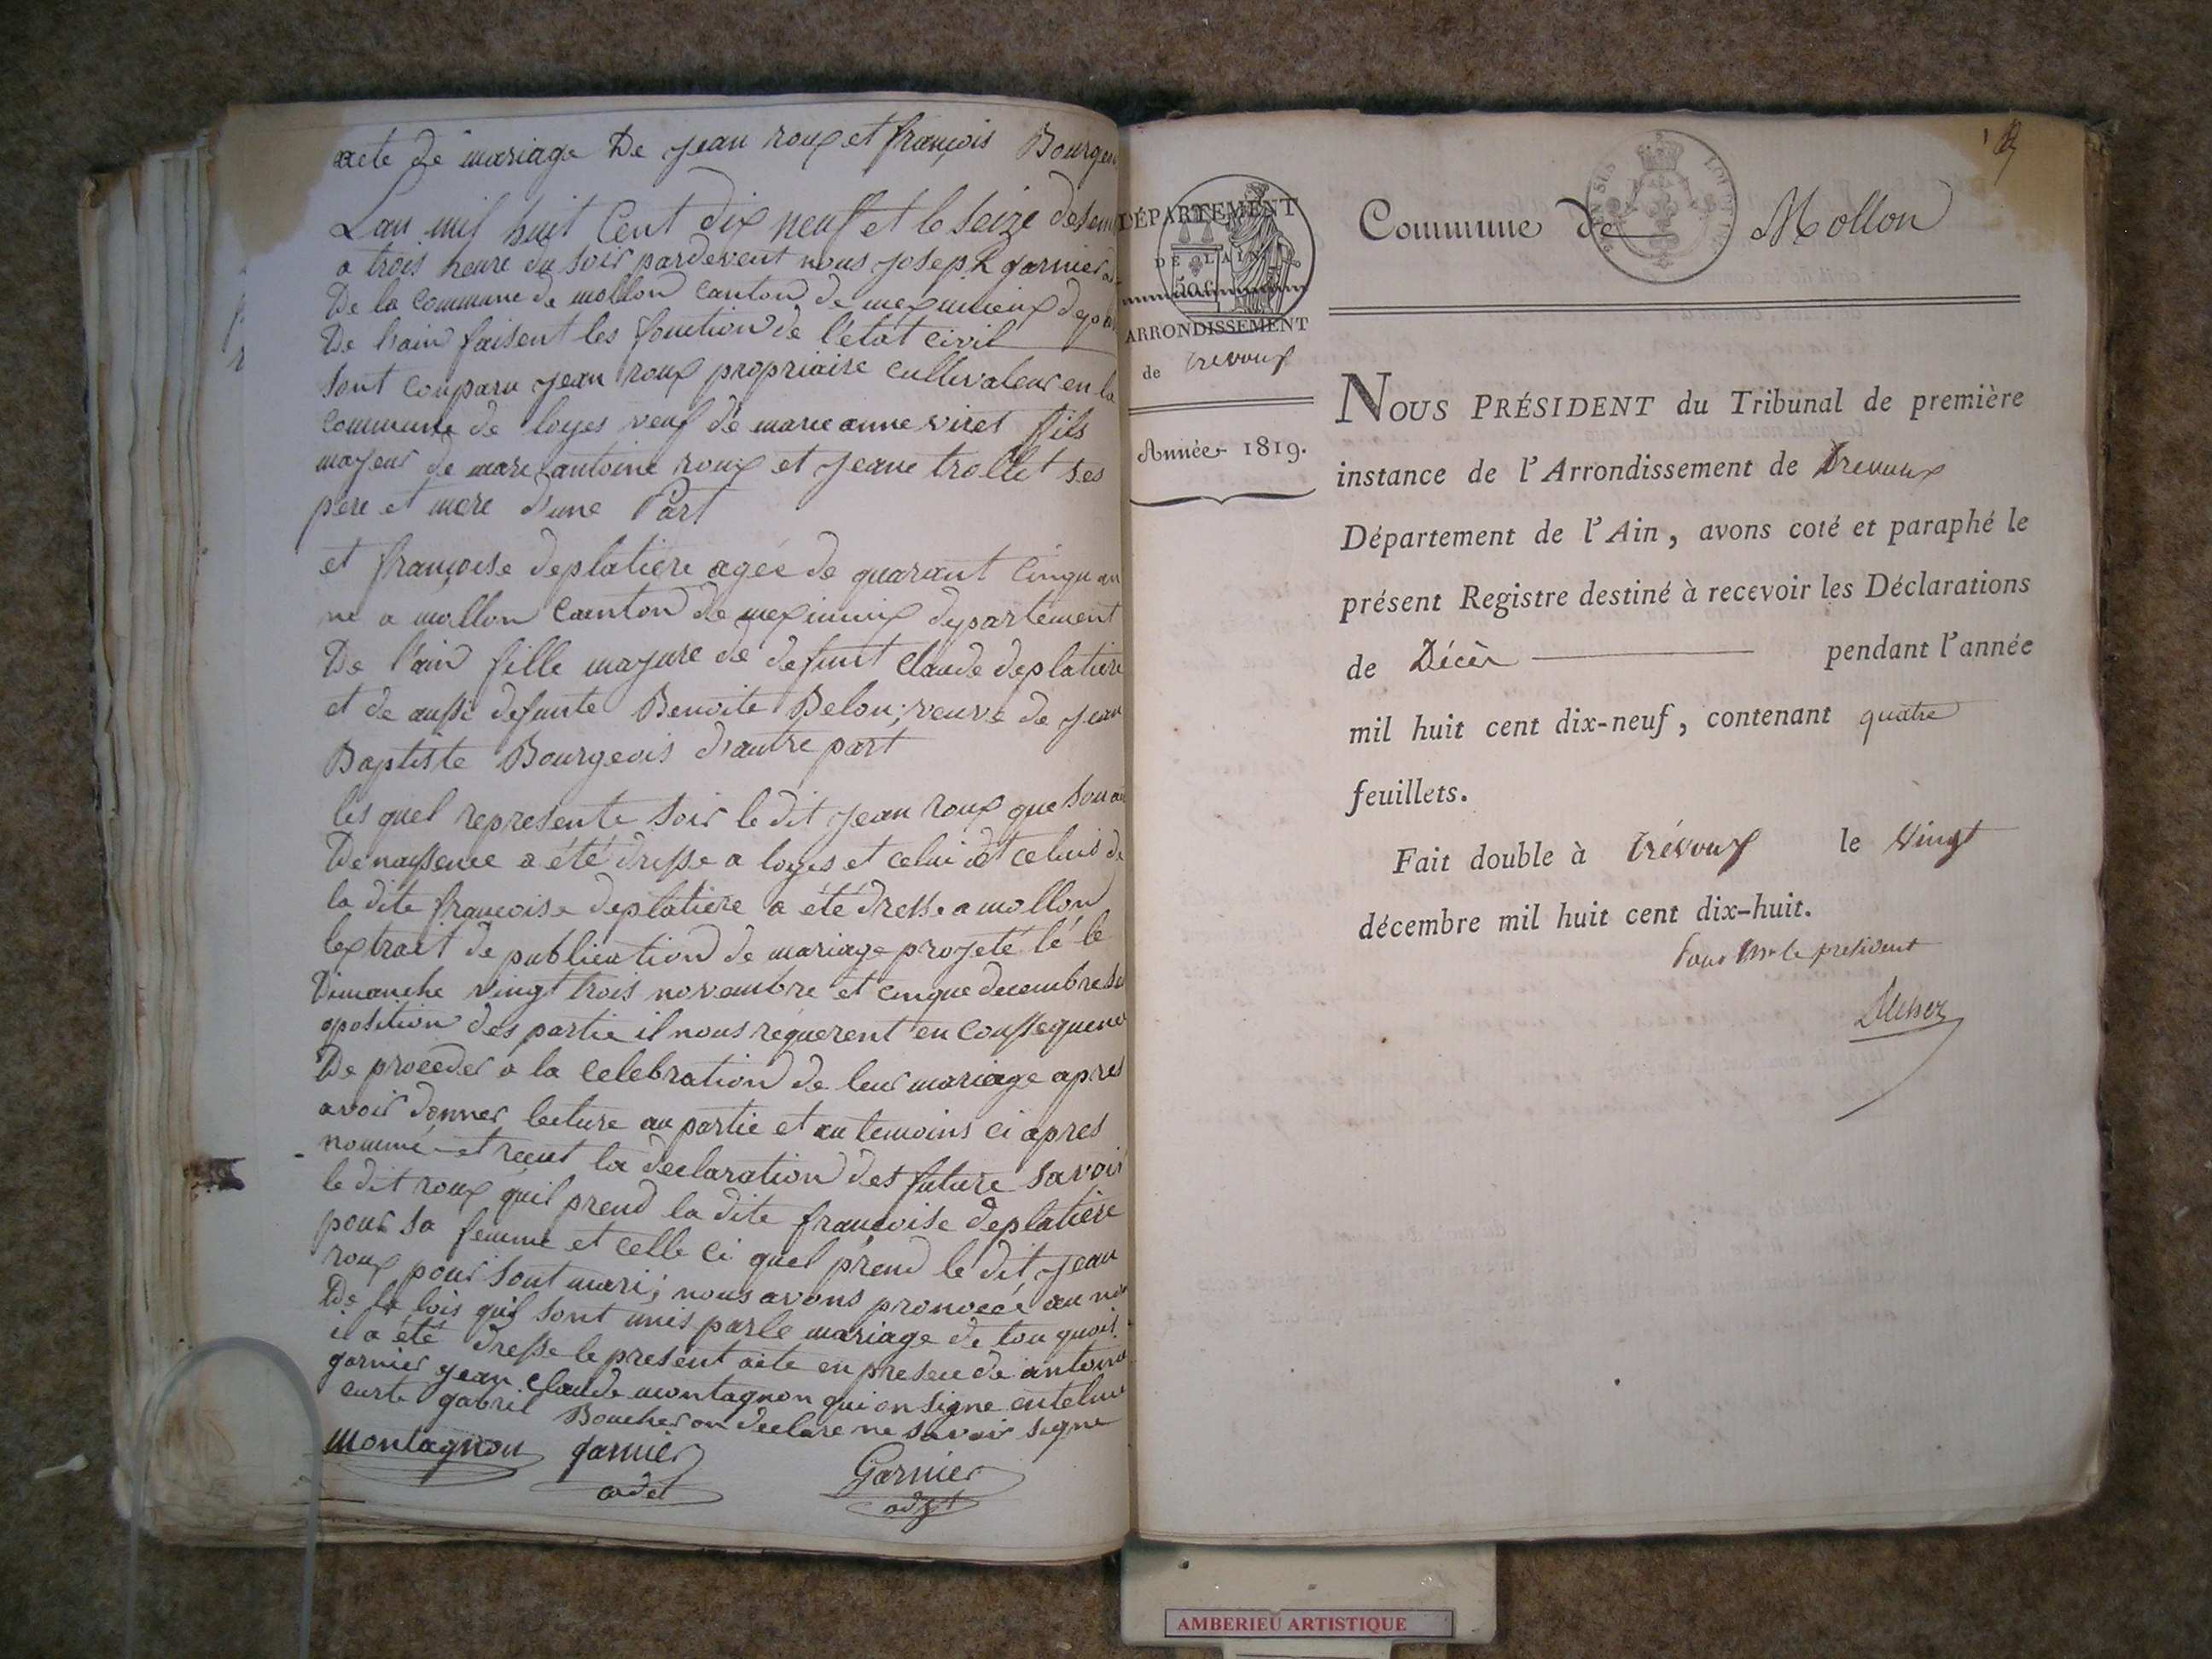 acte de mariage De jean roux et françois Bourgeoi
Lan mil huit Cent dix neuf et le seize desem
a trois heure du soir pardevent nous joseph garnier
De la commune de mollon canton de meximieux depar
De l'ain faisent les fonction de l'état civil
sont conparu jean roux propriaire cultivateur en la
commune de loyes veuf de marie anne viret fils
majeur de marc antoine roux et jeane trollet ses
pere et mere d'une Part
et françoise deplatiere agée de quarant cinqu an
ne a mollon canton de meximieux departement
De l'ain fille majure de defunt claude deplatiere
et de aussi defunte Benoite Belon; veuve de jean
Baptiste Bourgeois d'autre part
les quel represente soir le dit jean roux que son
De naissence a été dresse a loyes et celui et celuis de
la dite francoise deplatiere a été dresse a mollon
lextrait de publication de mariage projeté lé le
Dimanche vingt trois novembre et cinque decembre
oposition des partie il nous requerent en conssequence
De proceder a la celebration de leur mariage apres
avoir donner lecture au partie et au temoins ci apres
nommé et recut la declaration des future savoir
le dit roux quil prend la dite françoise deplatiere
pour sa femme et celle ci quel prend le dit jean
roux pour sont mari; nous avons prononcé au nom
De la lois quil sont unis parle mariage de tou quois
il a été dresse le present acte en presece de antoine
garnier jean claude montagnon qui on signe
gabriel Boucheron declare ne savoir signe
montagnon garnier Garnier
adjt
DÉPARTEMENT
DE L'AIN
50 c
ARRONDISSEMENT
de trevoux
Année 1819.
Commune de Mollon
NOUS PRÉSIDENT du Tribunal de première
instance de l'Arrondissement de Trevoux
Département de l'Ain, avons coté et paraphé le
présent Registre destiné à recevoir les Déclarations
de Décès pendant l'année
mil huit cent dix-neuf, contenant quatre
feuillets.
Fait double à trévoux le vingt
décembre mil huit cent dix-huit.
Pour Mr le president
AMBERIEU ARTISTIQUE